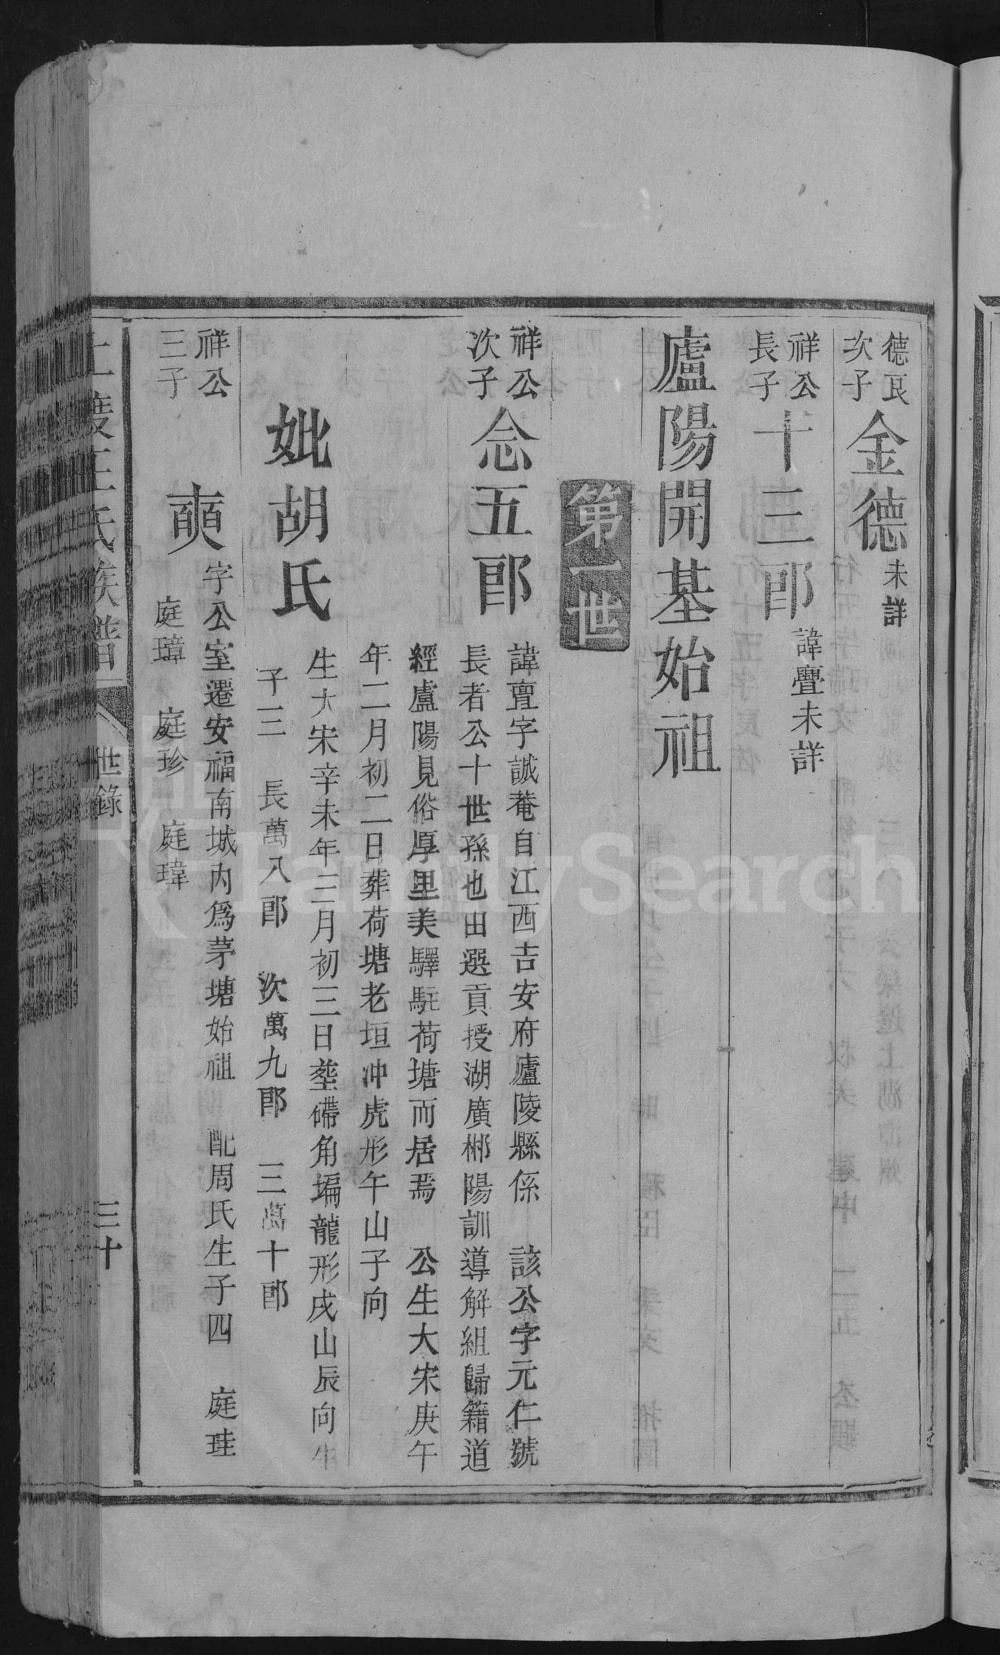 德良
次子
金德
未詳
祥公
長子
十三郎
諱亹未詳
廬陽開基始祖
第一世
祥公
次子
念五郎
諱亶字誠菴自江西吉安府廬陵縣係 該公字元仁號
長者公十世孫也由選貢授湖廣郴陽訓導解組歸籍道
經廬陽見俗厚里美驛駐荷塘而居焉 公生大宋庚午
年二月初二日葬荷塘老垣冲虎形午山子向
妣胡氏
生大宋辛未年三月初三日塟礴角塥龍形戌山辰向生
子三 長萬八郎 次萬九郎 三萬十郎
祥公
三子
奭
字公室遷安福南城内為茅塘始祖 配周氏生子四 庭珪
庭璋 庭珍 庭瑋
上度王氏族譜
世錄
三十
FamilySearch